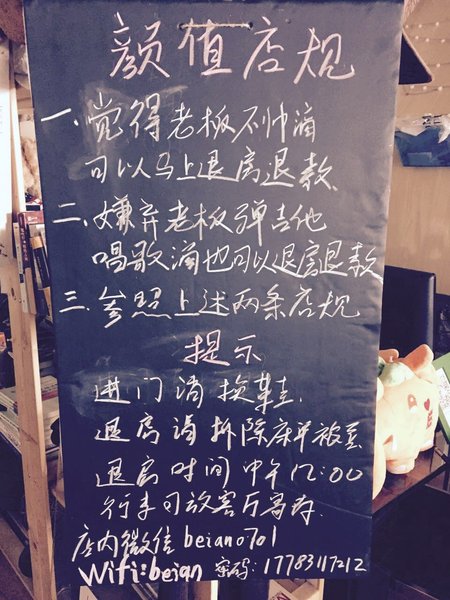 颜值店规
一、觉得老板不帅滴
可以马上退房退款
二、嫌弃老板弹吉他
唱歌滴也可以退房退款
三、参照上述两条店规
提示
进门请换鞋
退房请拆除床单被套
退房时间中午12:00
行李可放客厅寄存
店内微信beian0701
Wifi:beian 密码:17783117212